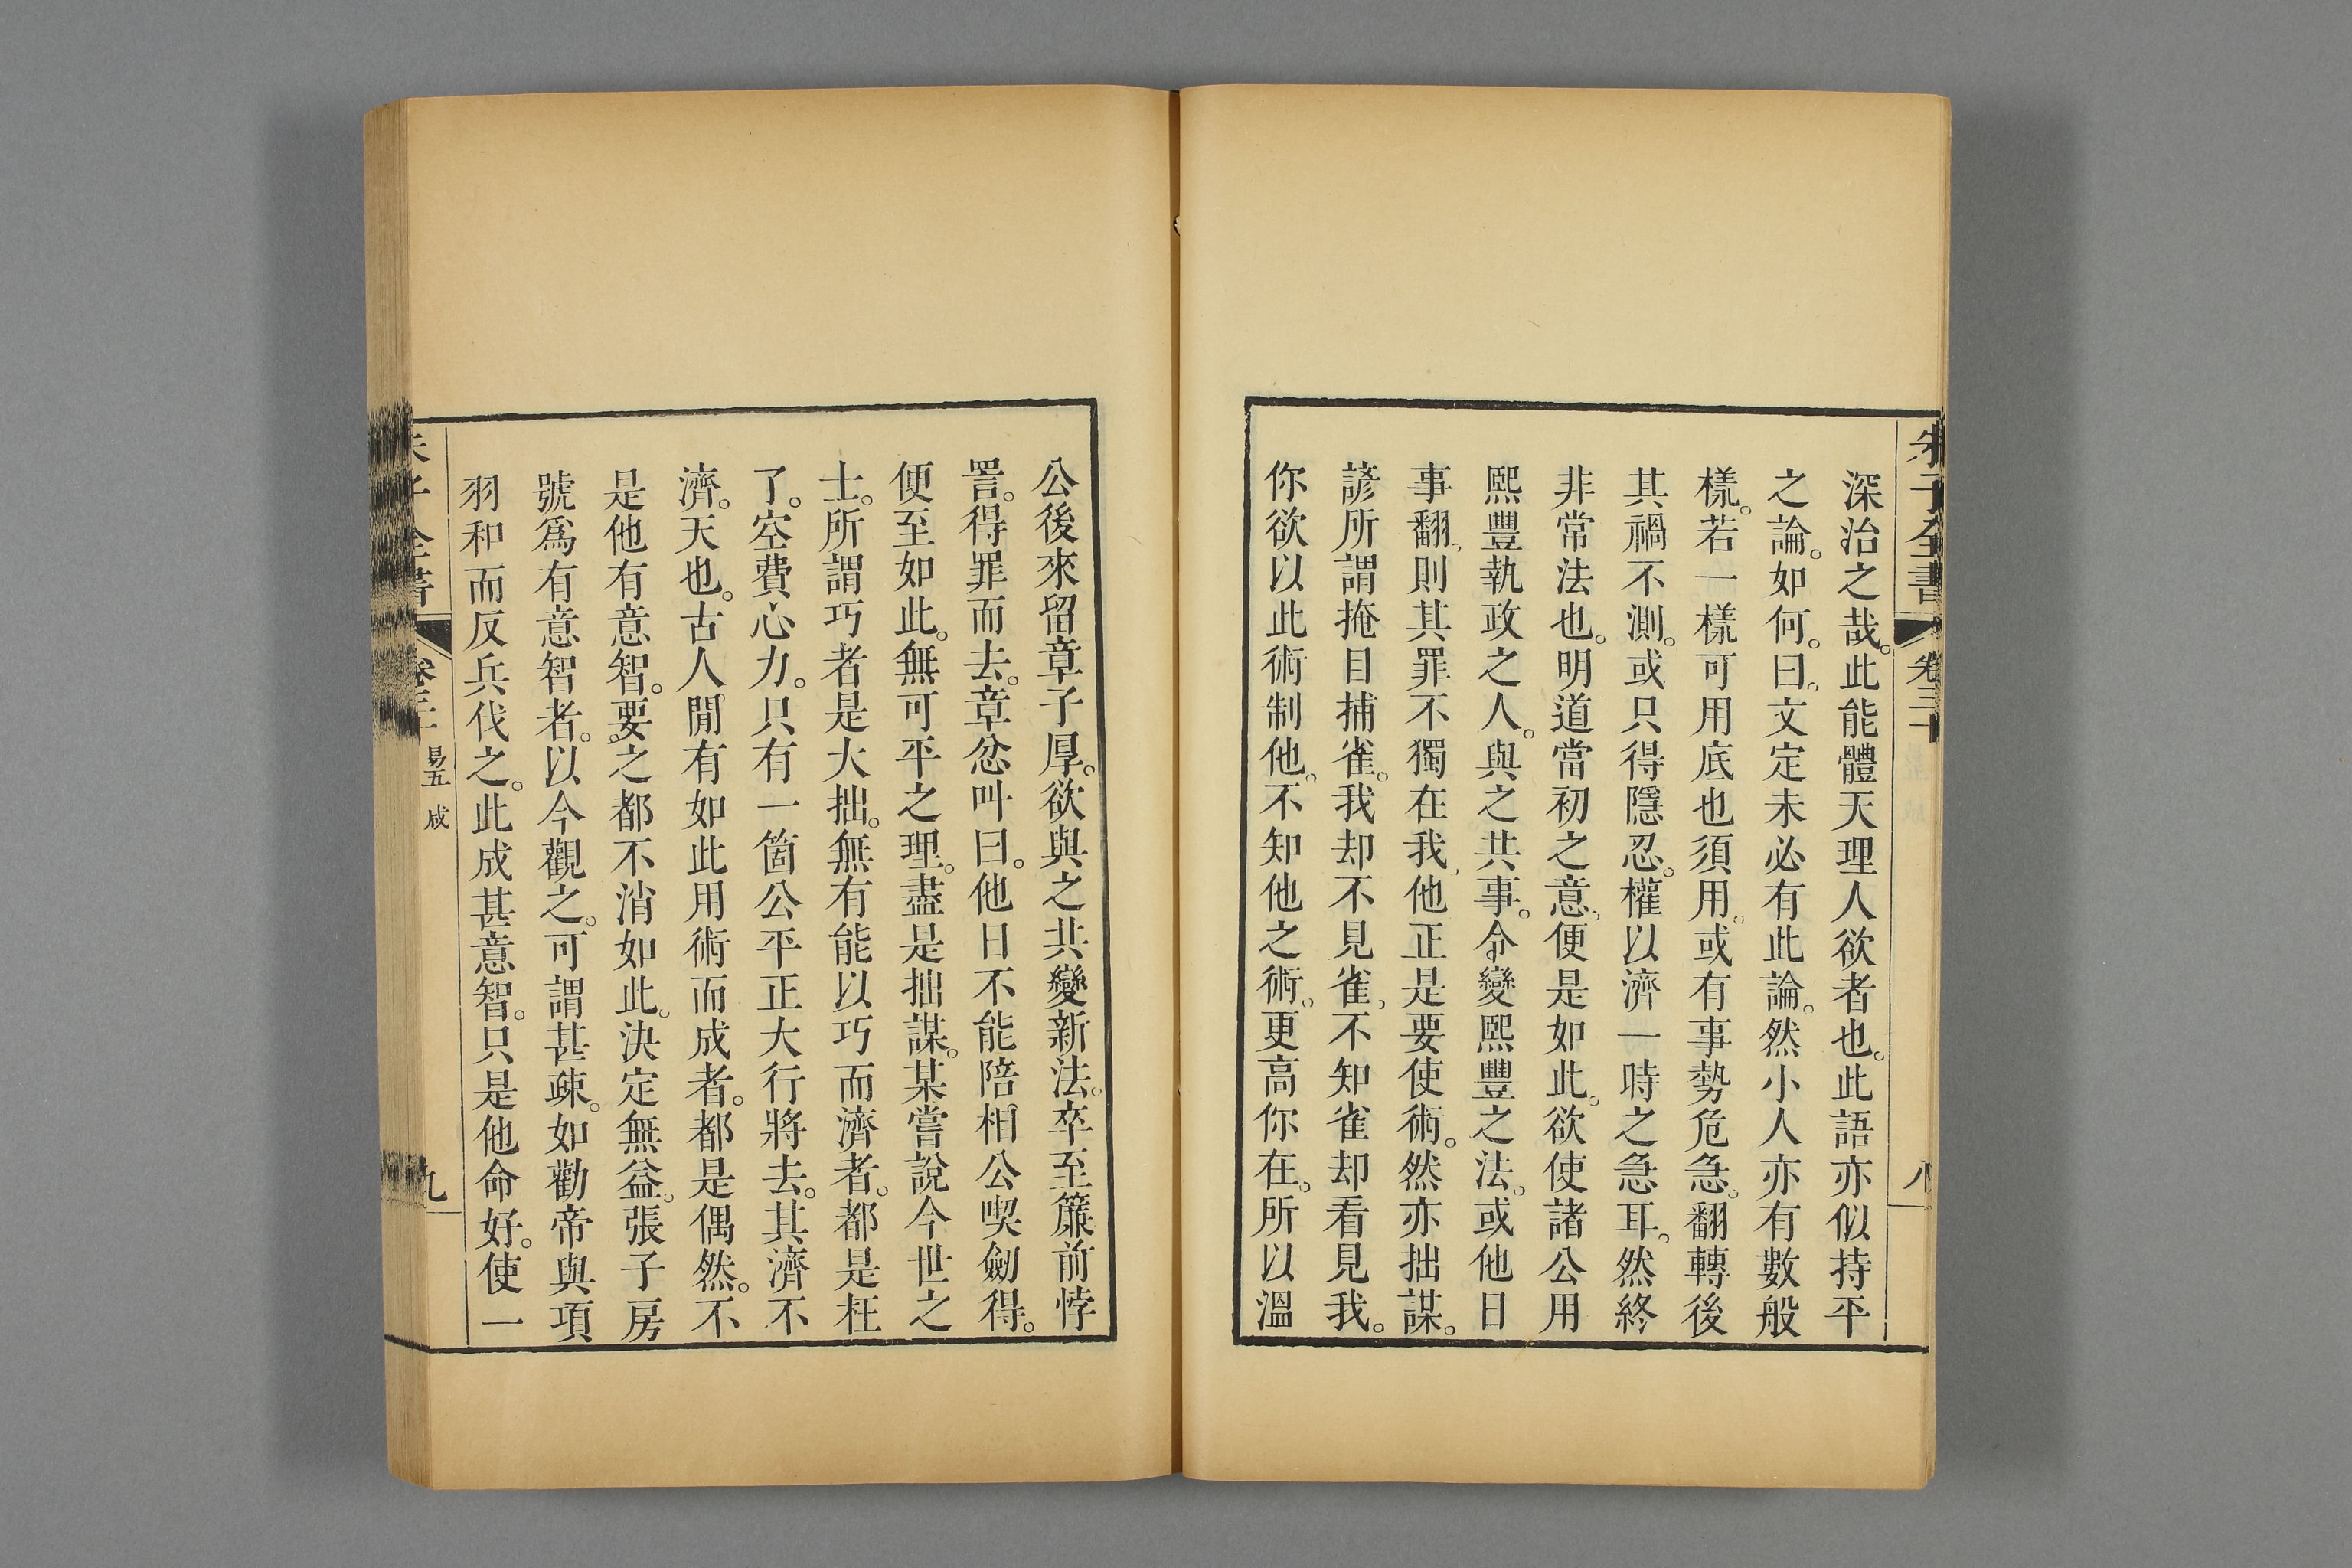 朱子全書 卷三十 八
深治之哉。此能體天理人欲者也。此語亦似持平
之論。如何。曰。文定未必有此論。然小人亦有數般
樣。若一樣可用底也須用。或有事勢危急。翻轉後
其禍不測。或只得隱忍。權以濟一時之急耳。然終
非常法也。明道當初之意。便是如此。欲使諸公用
熙豐執政之人。與之共事。令變熙豐之法。或他日
事翻、則其罪不獨在我、他正是要使術。然亦拙謀。
諺所謂掩目捕雀。我却不見雀、不知雀却看見我。
你欲以此術制他。不知他之術。更高你在。所以溫
公後來留章子厚。欲與之共變新法。卒至簾前悖
詈。得罪而去。章忿叫曰。他日不能陪相公喫劒得。
便至如此。無可平之理。盡是拙謀。某嘗說今世之
士。所謂巧者是大拙。無有能以巧而濟者。都是枉
了。空費心力。只有一箇公平正大行將去。其濟不
濟。天也。古人閒有如此用術而成者。都是偶然。不
是他有意智。要之都不消如此。決定無益。張子房
號爲有意智者。以今觀之。可謂甚疎。如勸帝與項
羽和而反兵伐之。此成甚意智。只是他命好。使一
易五 咸 九